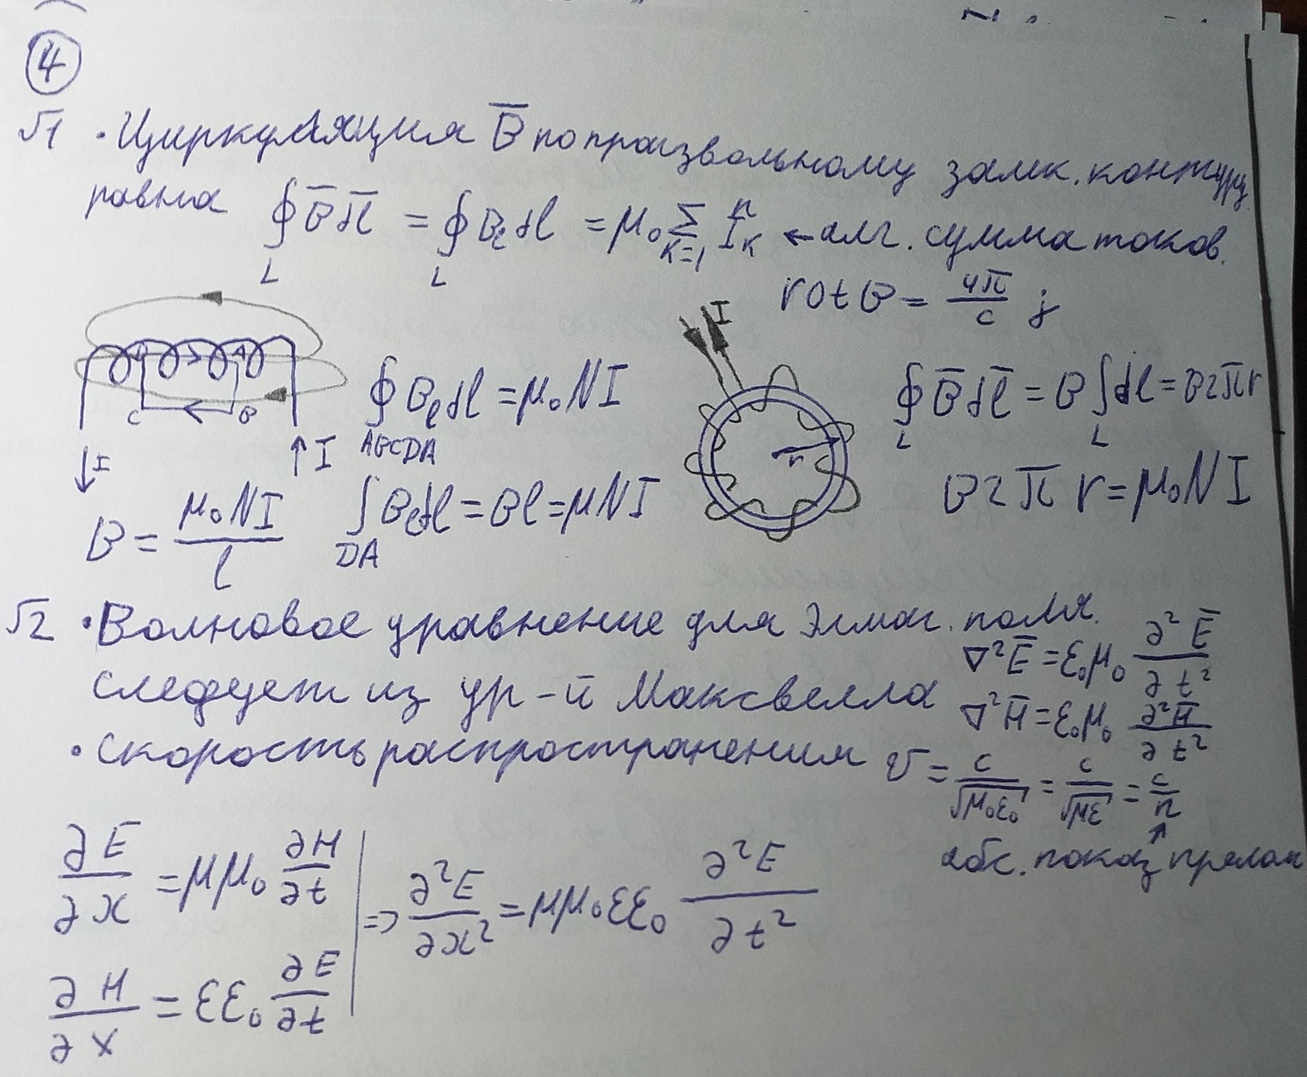 ④
√1 · Циркуляция B̅ по произвольному замк. контуру
равна ∮_L B̅ dl̅ = ∮_L B_l dl = μ₀ Σ_{k=1}^{n} I_k ← алг. сумма токов.
rot B = 4π/c j
∮_{ABCDA} B_l dl = μ₀NI
∮_L B̅ dl̅ = B ∫_L dl = B2πr
C B
I I I r
B = μ₀NI / l
∫_{DA} B_l dl = Bl = μNI
B2πr = μ₀NI
√2 · Волновое уравнение для Элмаг. поля.
следует из ур-й Максвелла
∇²E̅ = ε₀μ₀ ∂²E̅/∂t²
∇²H̅ = ε₀μ₀ ∂²H̅/∂t²
· скорость распространения v = c/√μ₀ε₀ = c/√με = c/n
↑
абс. показ прелом
∂E/∂x = μμ₀ ∂H/∂t
=> ∂²E/∂x² = μμ₀εε₀ ∂²E/∂t²
∂H/∂x = εε₀ ∂E/∂t